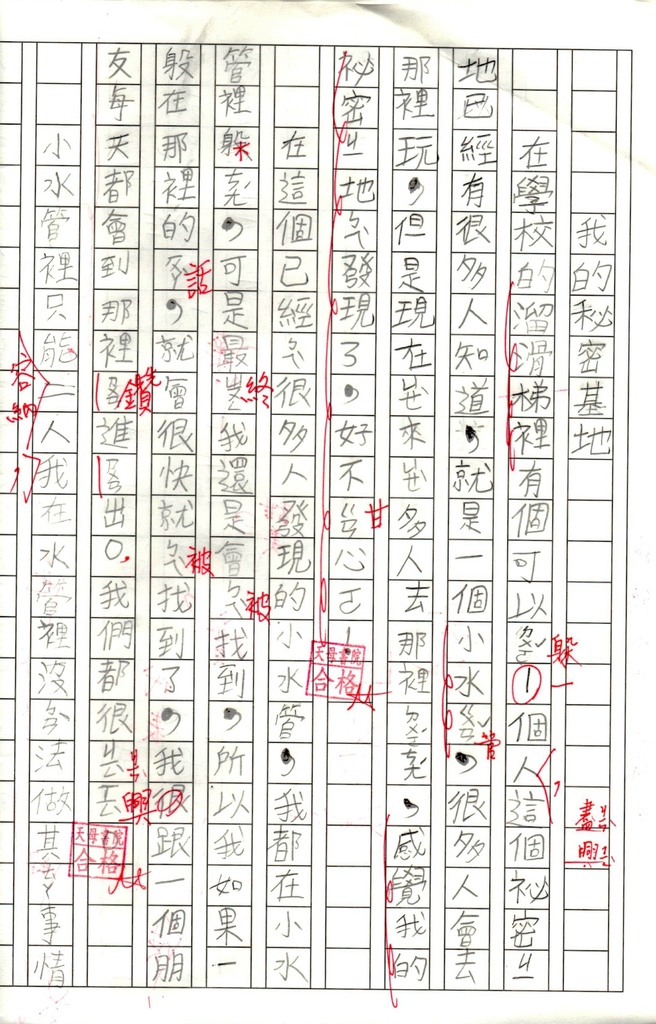 我的秘密基地
在學校的溜滑梯裡有個可以ㄉㄨㄛˇ1個人這個祕密ㄐㄧ
躲
一
,
盡興
地已經有很多人知道,就是一個小水ㄍㄨㄢˇ,很多人會去
管
那裡玩,但是現在ㄩㄝ來ㄩㄝ多人去那裡ㄉㄨㄛ,感覺我的
祕密ㄐㄧ地ㄅㄟ發現了,好不ㄍㄢ心ㄛ!
甘
天母書院
合格
在這個已經ㄅㄟ很多人發現的小水管,我都在小水
管裡躲,可是最ㄓㄨㄥ我還是會ㄅㄟ找到,所以我如果一
終
被
躲在那裡的,就會很快就ㄅㄟ找到了,我很跟一個朋
話
被
友每天都會到那裡進出。我們都很
鑽
興
天母書院
合格
小水管裡只能二人我在水管裡沒ㄅㄢ法做其ㄊㄚ事情
容納